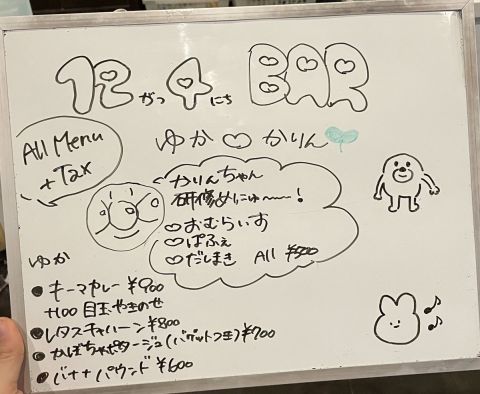 12がつ4にち BAR
All Menu
+ Tax
ゆか♡かりん
かりんちゃん
研修めにゅ〜〜!
♡おむらいす
♡ぱふぇ
♡だしまき All ¥500
ゆか
●キーマカレー ¥900
+100 目玉やきのせ
●レタスチャーハーン ¥800
●かぼちゃポタージュ(バゲットつき)¥700
●バナナパウンド ¥600